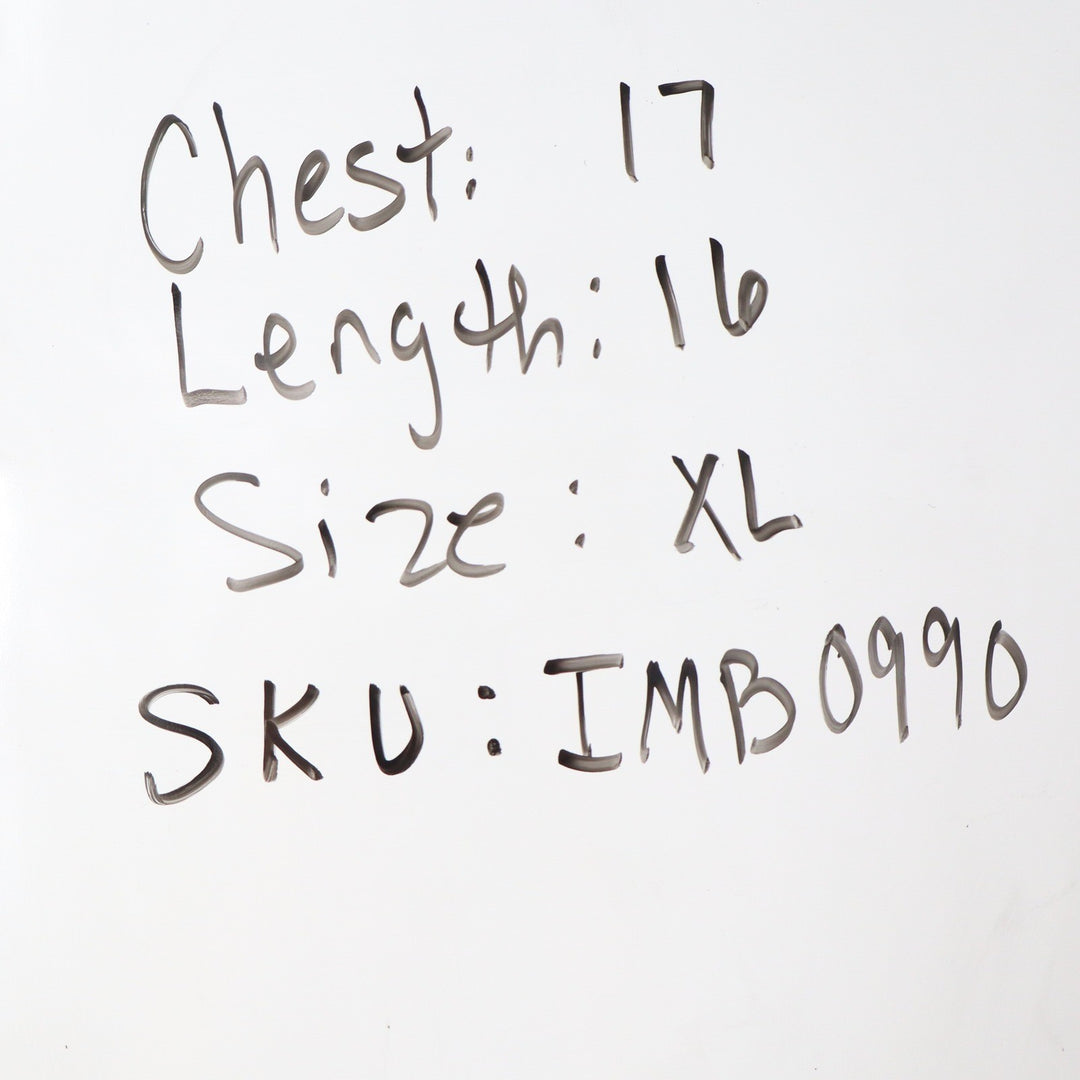 Chest: 17
Length: 16
Size: XL
SKU: IMB0990